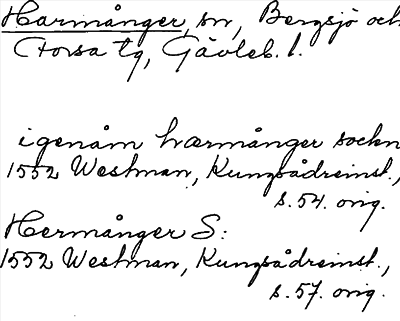 Harmånger, sn, Bergsjö och
Forsa tg, Gävleb. l.
igenåm harmånger sockn
1552 Westman, Kungsådreinst.,
s. 54. orig.
Hermånger S:
1552 Westman, Kungsådreinst.,
s. 57. orig.